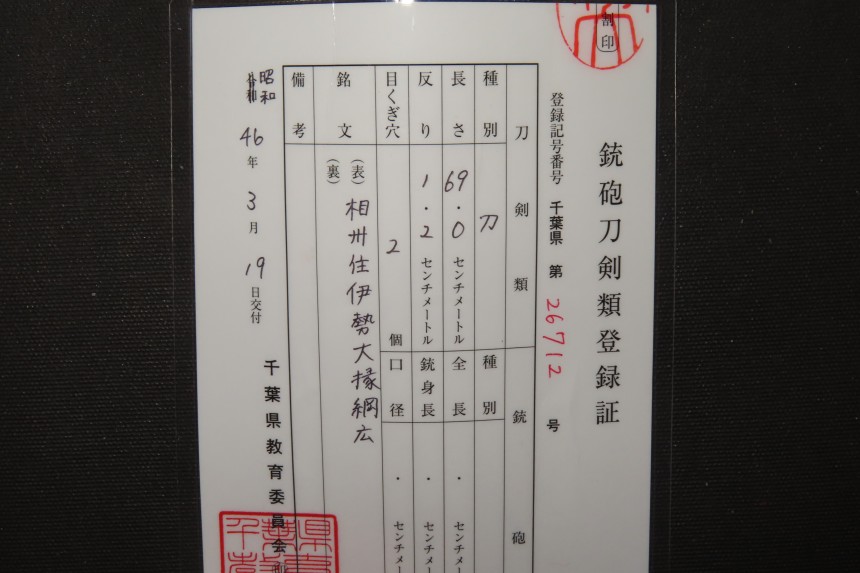 銃砲刀剣類登録証
登録記号番号 千葉県 第 26712 号
割印
刀剣類 銃砲
種別 刀 種別
長さ 69.0 センチメートル 全長 ・ センチメー
反り 1.2 センチメートル 銃身長 ・ センチメー
目くぎ穴 2 個 口径 ・ センチメー
銘文 (表) 相州住伊勢大掾綱広
(裏)
備考
昭和 46年 3月 19日交付
千葉県教育委員会